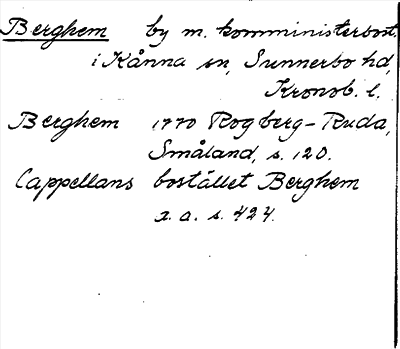 Berghem by m. komministerbost.
i Kånna sn, Sunnerbo hd,
Kronob. l.
Berghem 1770 Rogberg-Ruda,
Småland, s. 120.
Cappellans bostället Berghem
x. a. s. 424.